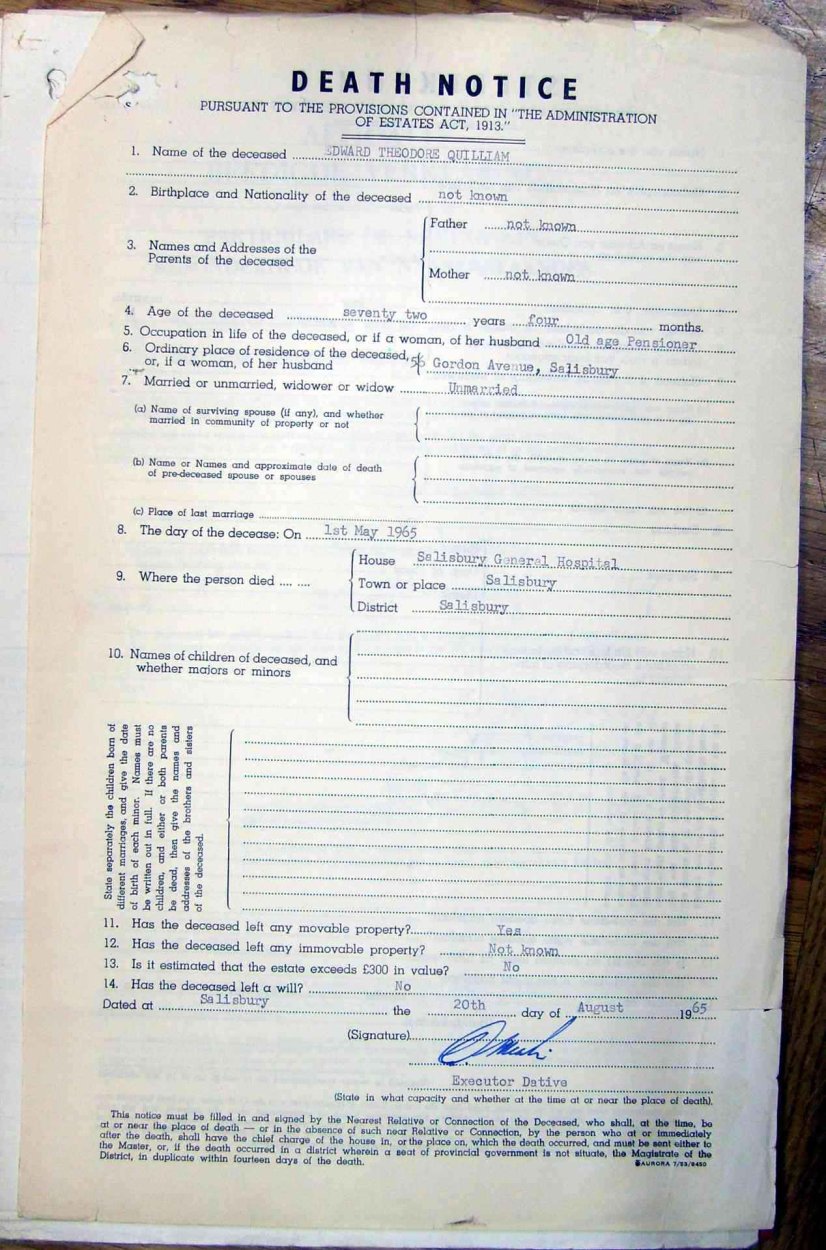 DEATH NOTICE
PURSUANT TO THE PROVISIONS CONTAINED IN "THE ADMINISTRATION
OF ESTATES ACT, 1913."
1. Name of the deceased EDWARD THEODORE QUILLIAM
2. Birthplace and Nationality of the deceased not known
Father not known
3. Names and Addresses of the
Parents of the deceased
Mother not known
4. Age of the deceased seventy two years four months.
5. Occupation in life of the deceased, or if a woman, of her husband Old age Pensioner
6. Ordinary place of residence of the deceased,
or, if a woman, of her husband 56 Gordon Avenue, Salisbury
7. Married or unmarried, widower or widow Unmarried
(a) Name of surviving spouse (if any), and whether
married in community of property or not
(b) Name or Names and approximate date of death
of pre-deceased spouse or spouses
(c) Place of last marriage
8. The day of the decease: On 1st May 1965
House Salisbury General Hospital
9. Where the person died .... .... Town or place Salisbury
District Salisbury
10. Names of children of deceased, and
whether majors or minors
State separately the children born of
different marriages, and give the date
of birth of each minor. Names must
be written out in full. If there are no
children, and either or both parents
be dead, then give the names and
addresses of the brothers and sisters
of the deceased.
11. Has the deceased left any movable property? Yes
12. Has the deceased left any immovable property? Not known
13. Is it estimated that the estate exceeds £300 in value? No
14. Has the deceased left a will? No
Dated at Salisbury the 20th day of August 1965
(Signature)
Executor Dative
(State in what capacity and whether at the time at or near the place of death).
This notice must be filled in and signed by the Nearest Relative or Connection of the Deceased, who shall, at the time, be
at or near the place of death — or in the absence of such near Relative or Connection, by the person who at or immediately
after the death, shall have the chief charge of the house in, or the place on, which the death occurred, and must be sent either to
the Master, or, if the death occurred in a district wherein a seat of provincial government is not situate, the Magistrate of the
District, in duplicate within fourteen days of the death.
AURORA 7/53/8450